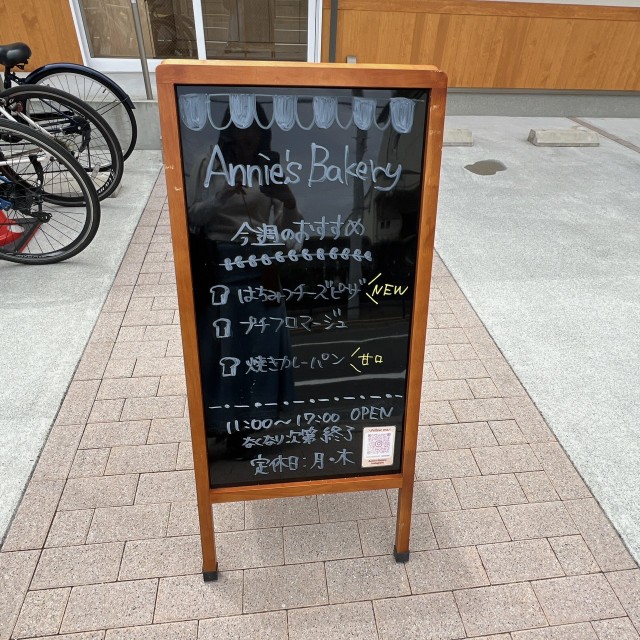 Annie's Bakery
今週のおすすめ
はちみつチーズピザ NEW
プチフロマージュ
焼きカレーパン 甘口
11:00〜17:00 OPEN
なくなり次第 終了
定休日:月・木